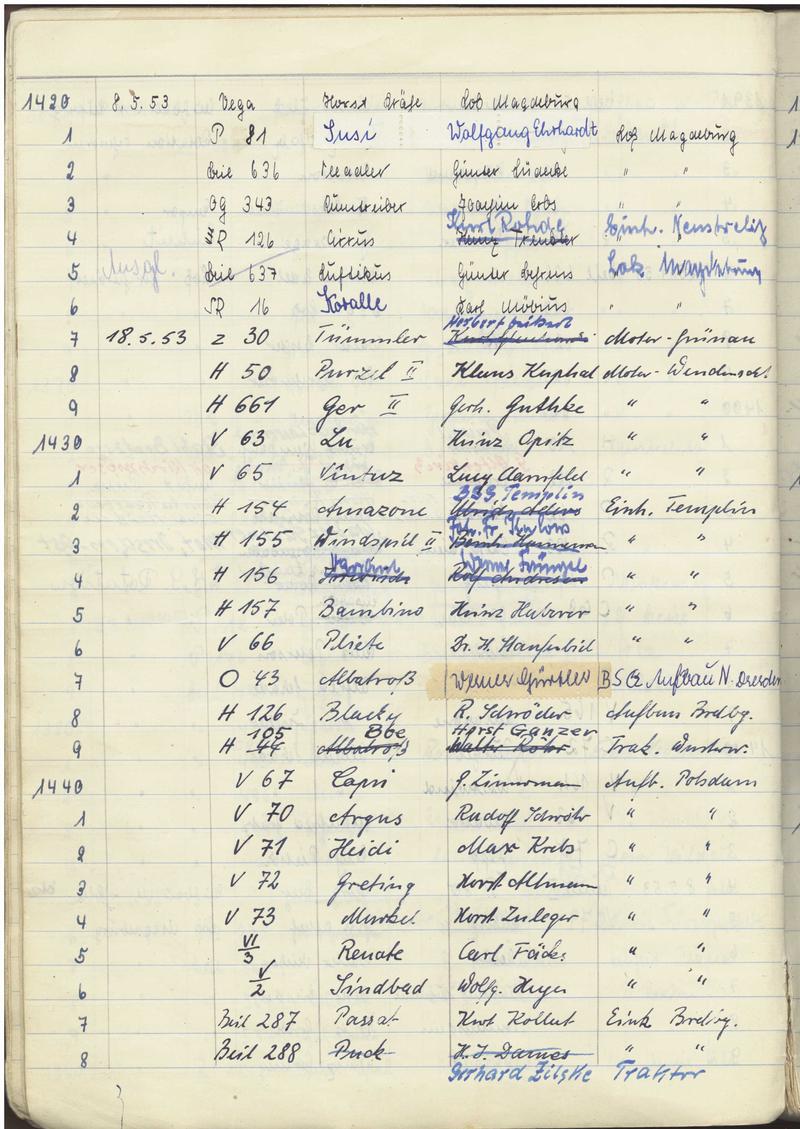 1420 8.5.53 Vega Horst Gräfe Lok Magdeburg
1 P 81 Susi Wolfgang Ehrhardt Lok Magdeburg
2 Beil 636 Seeadler Günter " "
3 OG 343 Rumtreiber Joachim Erbs " "
Kurt Rohde Einh. Neustrelitz
4 SR 126 Cirrus Trendler " "
5 Ausgl. Beil 637 Luftikus Günter Behrens Lok Magdeburg
6 SR 16 Koralle Karl Möbius " "
Herbert
7 18.5.53 Z 30 Tümmler Motor-Grünau
8 H 50 Purzel II Klaus Kuphal Motor-Wendenschl.
9 H 661 Ger II Gerh. Guthke " "
1430 V 63 Lu Heinz Opitz " "
1 V 65 Lucy " "
BSG Templin
2 H 154 Amazone Einh. Templin
Joh. Fr.
3 H 155 Windspiel II Hamann " "
4 H 156 Rolf Andresen " "
5 H 157 Bambino Heinz Haberer " "
6 V 66 Pliete Dr. H. " "
7 O 43 Albatroß Werner Gürtler BSG Aufbau N. Dresden
8 H 126 Blacky R. Schröder Aufbau Brdbg.
105 Bbe Horst Ganzer
9 H 44 Albatroß Walter Rohr Trak.
1440 V 67 Capri G. Zimmermann Aufb. Potsdam
1 V 70 Argus Rudolf " "
2 V 71 Heidi Max Krebs " "
3 V 72 Greting Horst Altmann " "
4 V 73 Murkel Horst Zuleger " "
5 VI/3 Renate Carl " "
6 V/2 Sindbad Wolfg. Heyer " "
7 Beil 287 Passat Kurt Kollut Einh. Brdbg.
8 Beil 288 Puck H.J. Dames " "
Gerhard Zilske Traktor